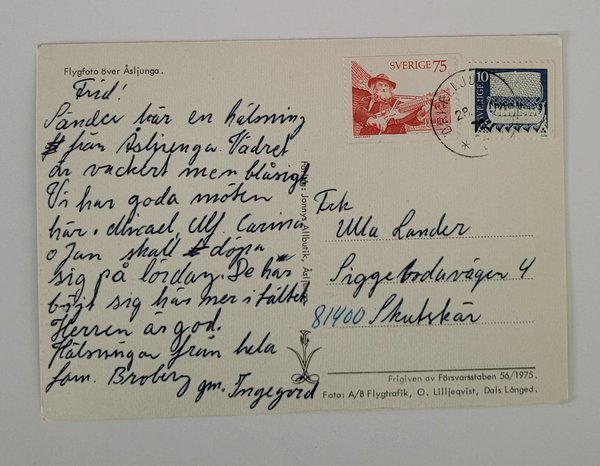 Flygfoto över Åsljunga.
Frid!
Sänder här en hälsning
från Åsljunga. Vädret
är vackert men blåsigt
Vi har goda möten
här. Micael, Ulf, Carina
o Jan skall döpa
sig på lördag. De har
böjt sig här mer i tältet
Herren är god.
Hälsningar från hela
fam. Broberg
gm. Ingegerd
Jonnys Allbutik, Åsljunga
SVERIGE 75
SVERIGE 10
ÖRKELLJUNGA
28
Frk
Ulla Lander
Siggebodavägen 4
81400 Skutskär
Frigiven av Försvarsstaben 56/1975.
Foto: A/B Flygtrafik, O. Lilljeqvist, Dals Långed.